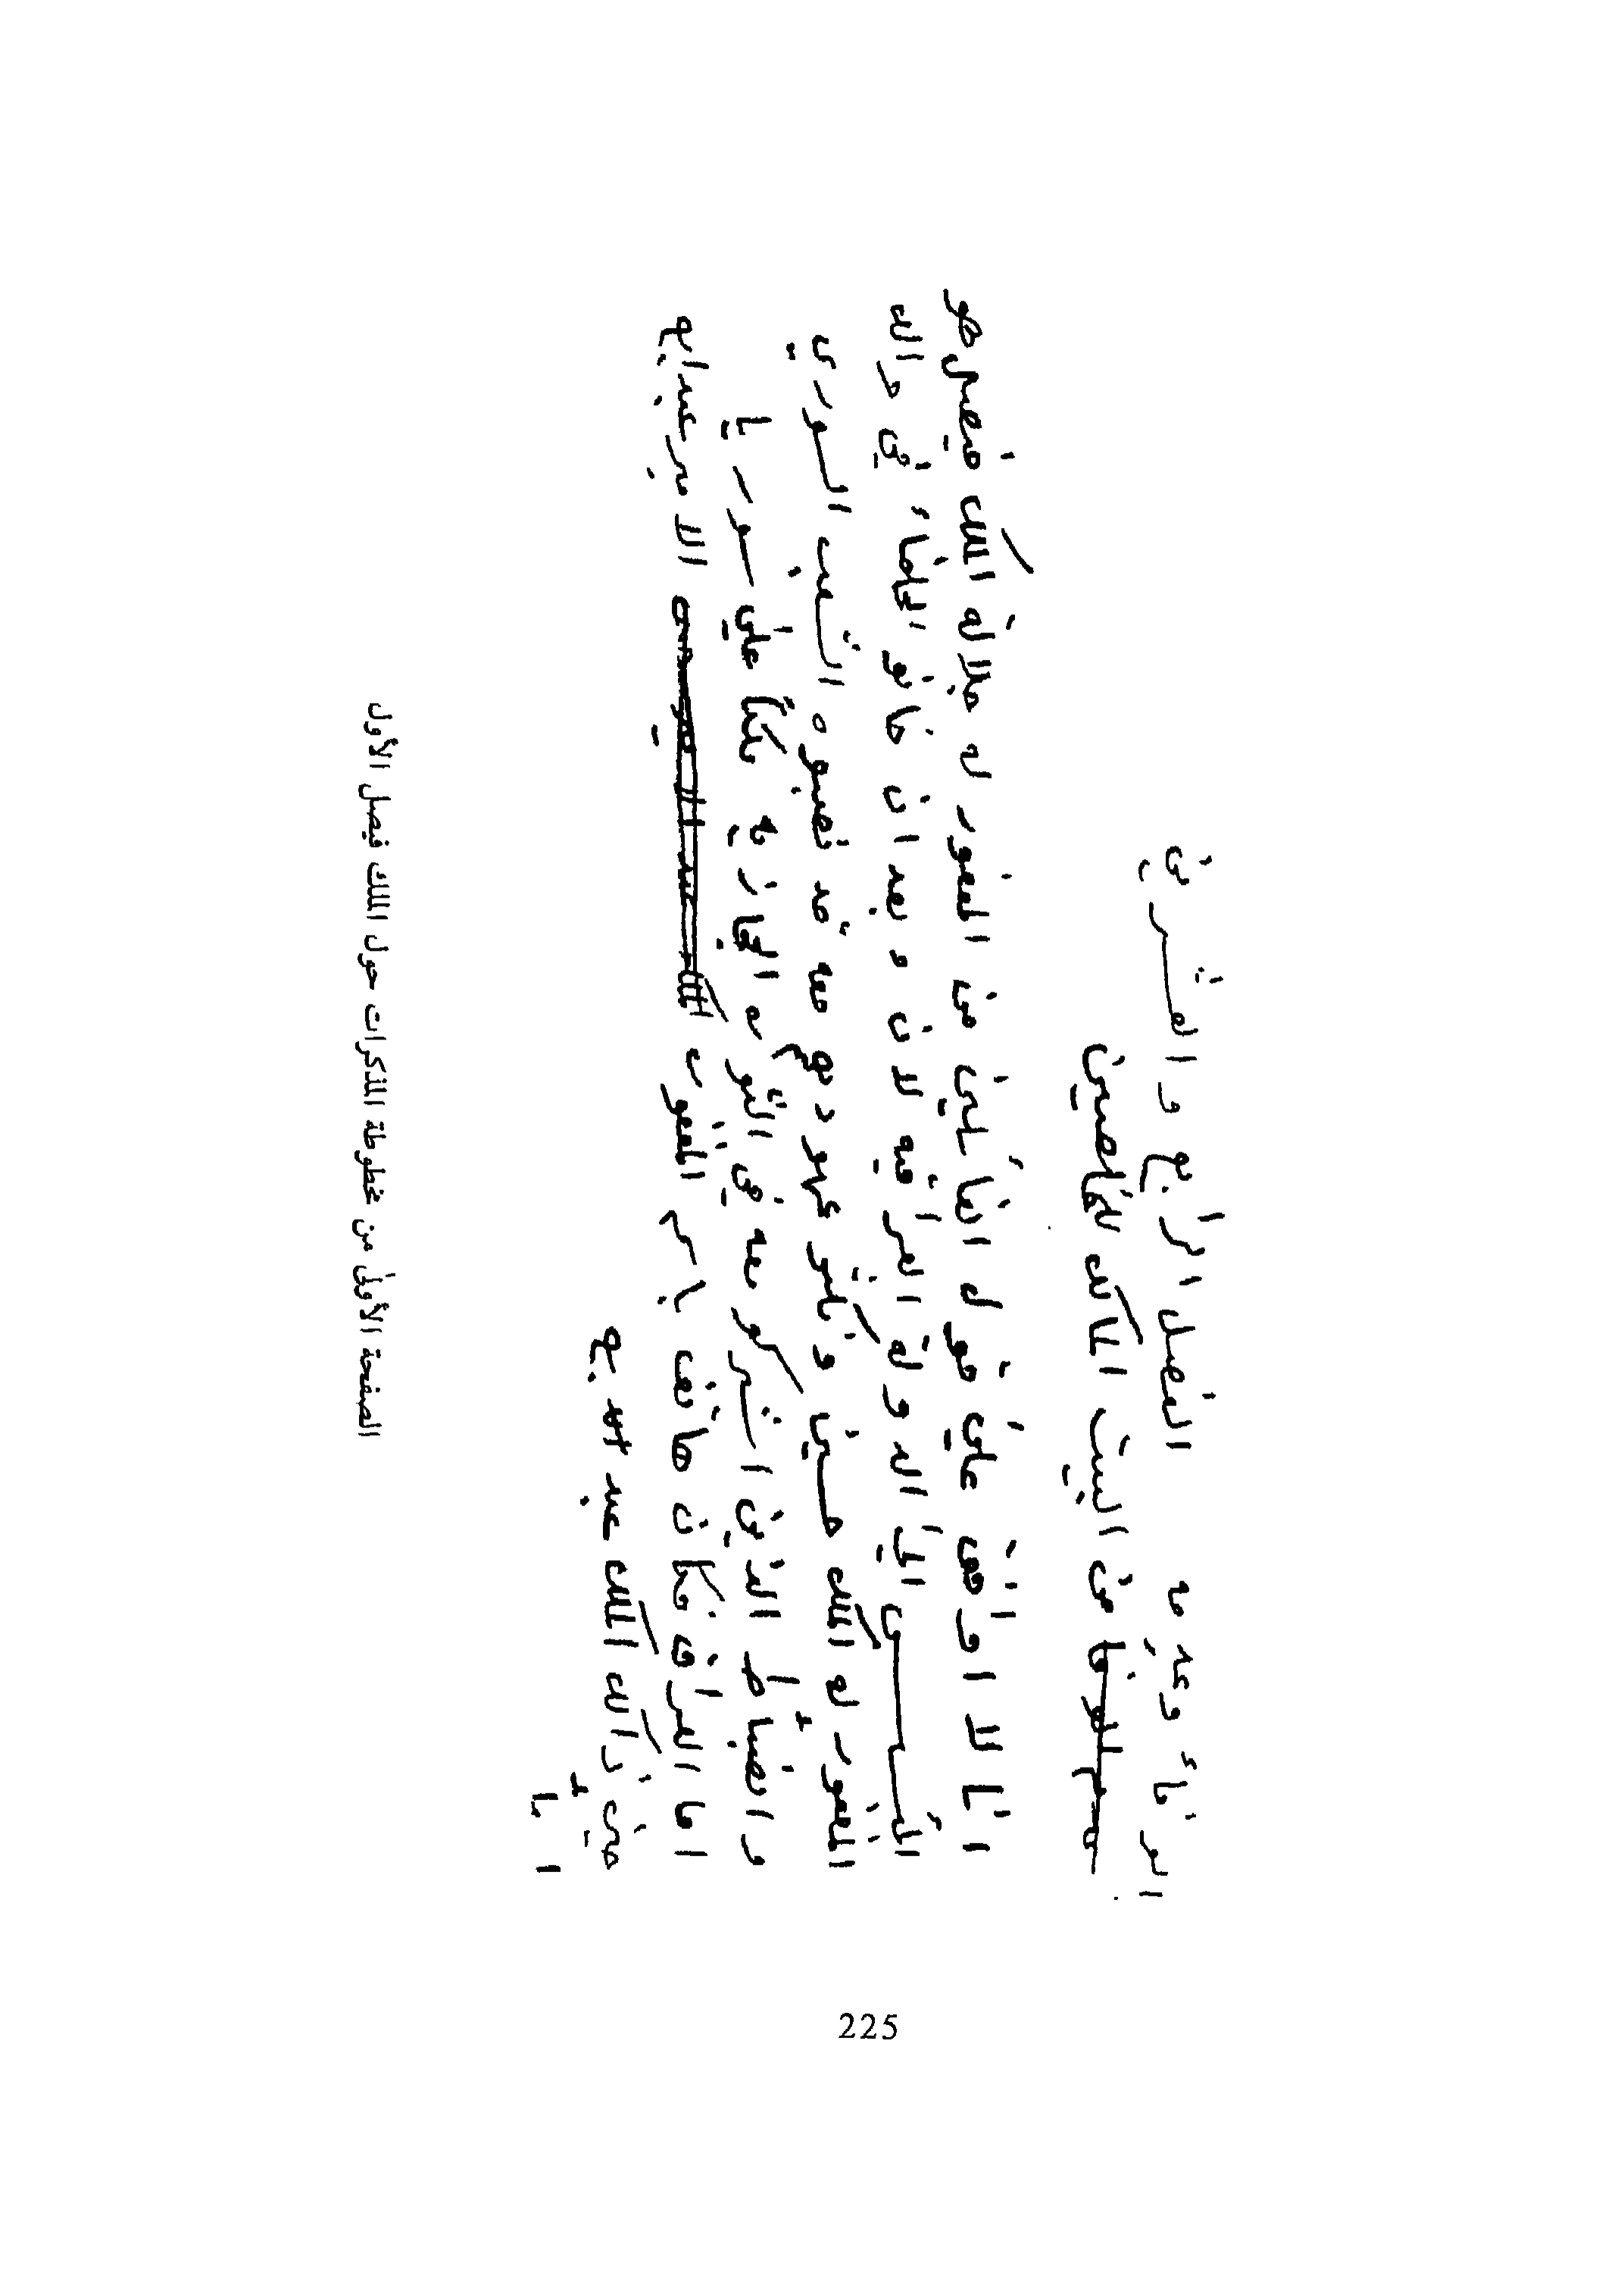 الفصل الرابع والعشرين
الوفاء وعدمه
من البيت المالك للمخلصين
انا لا اوافق على قول القائلين من المغفور له جلالة الملك فيصل هو
المؤسس الى الدولة العراقيه لان وبعد ان خانو الحلفاء في والده
المغفور له الملك حسين ونكثو عهودهم معه قد نصبوه الشعب السوري
والضباط الذين اشتركو معه في الثوره الحجازيه ملكاً على سوريا
اما العراق فكان هاتف باسم المغفور الامير عبدالله
حين ذاك الملك عبدالله
ابا
الصفحة الأولى من مخطوطة المذكرات حول الملك فيصل الأول
225